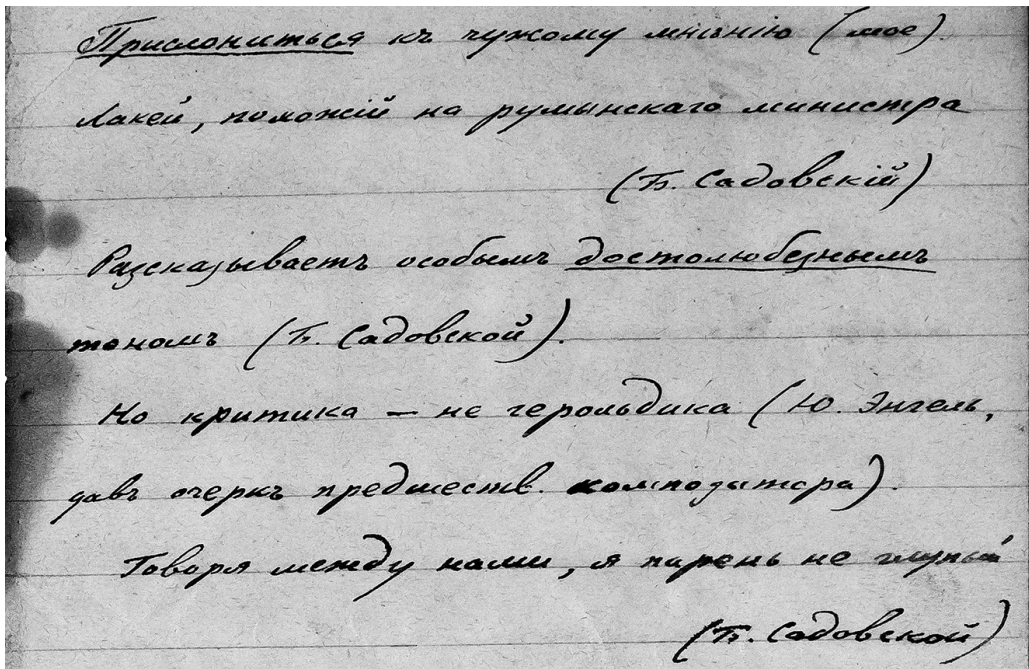 Прислониться къ чужому мнѣнію (мое).
Лакей, похожій на румынскаго министра
(Б. Садовскій)
Разсказываетъ особымъ достолюбезнымъ
тономъ (Б. Садовской).
Но критика — не герольдика (Ю. Энгель,
давъ очеркъ предшеств. композитора).
Говоря между нами, я парень не глупый
(Б. Садовской)